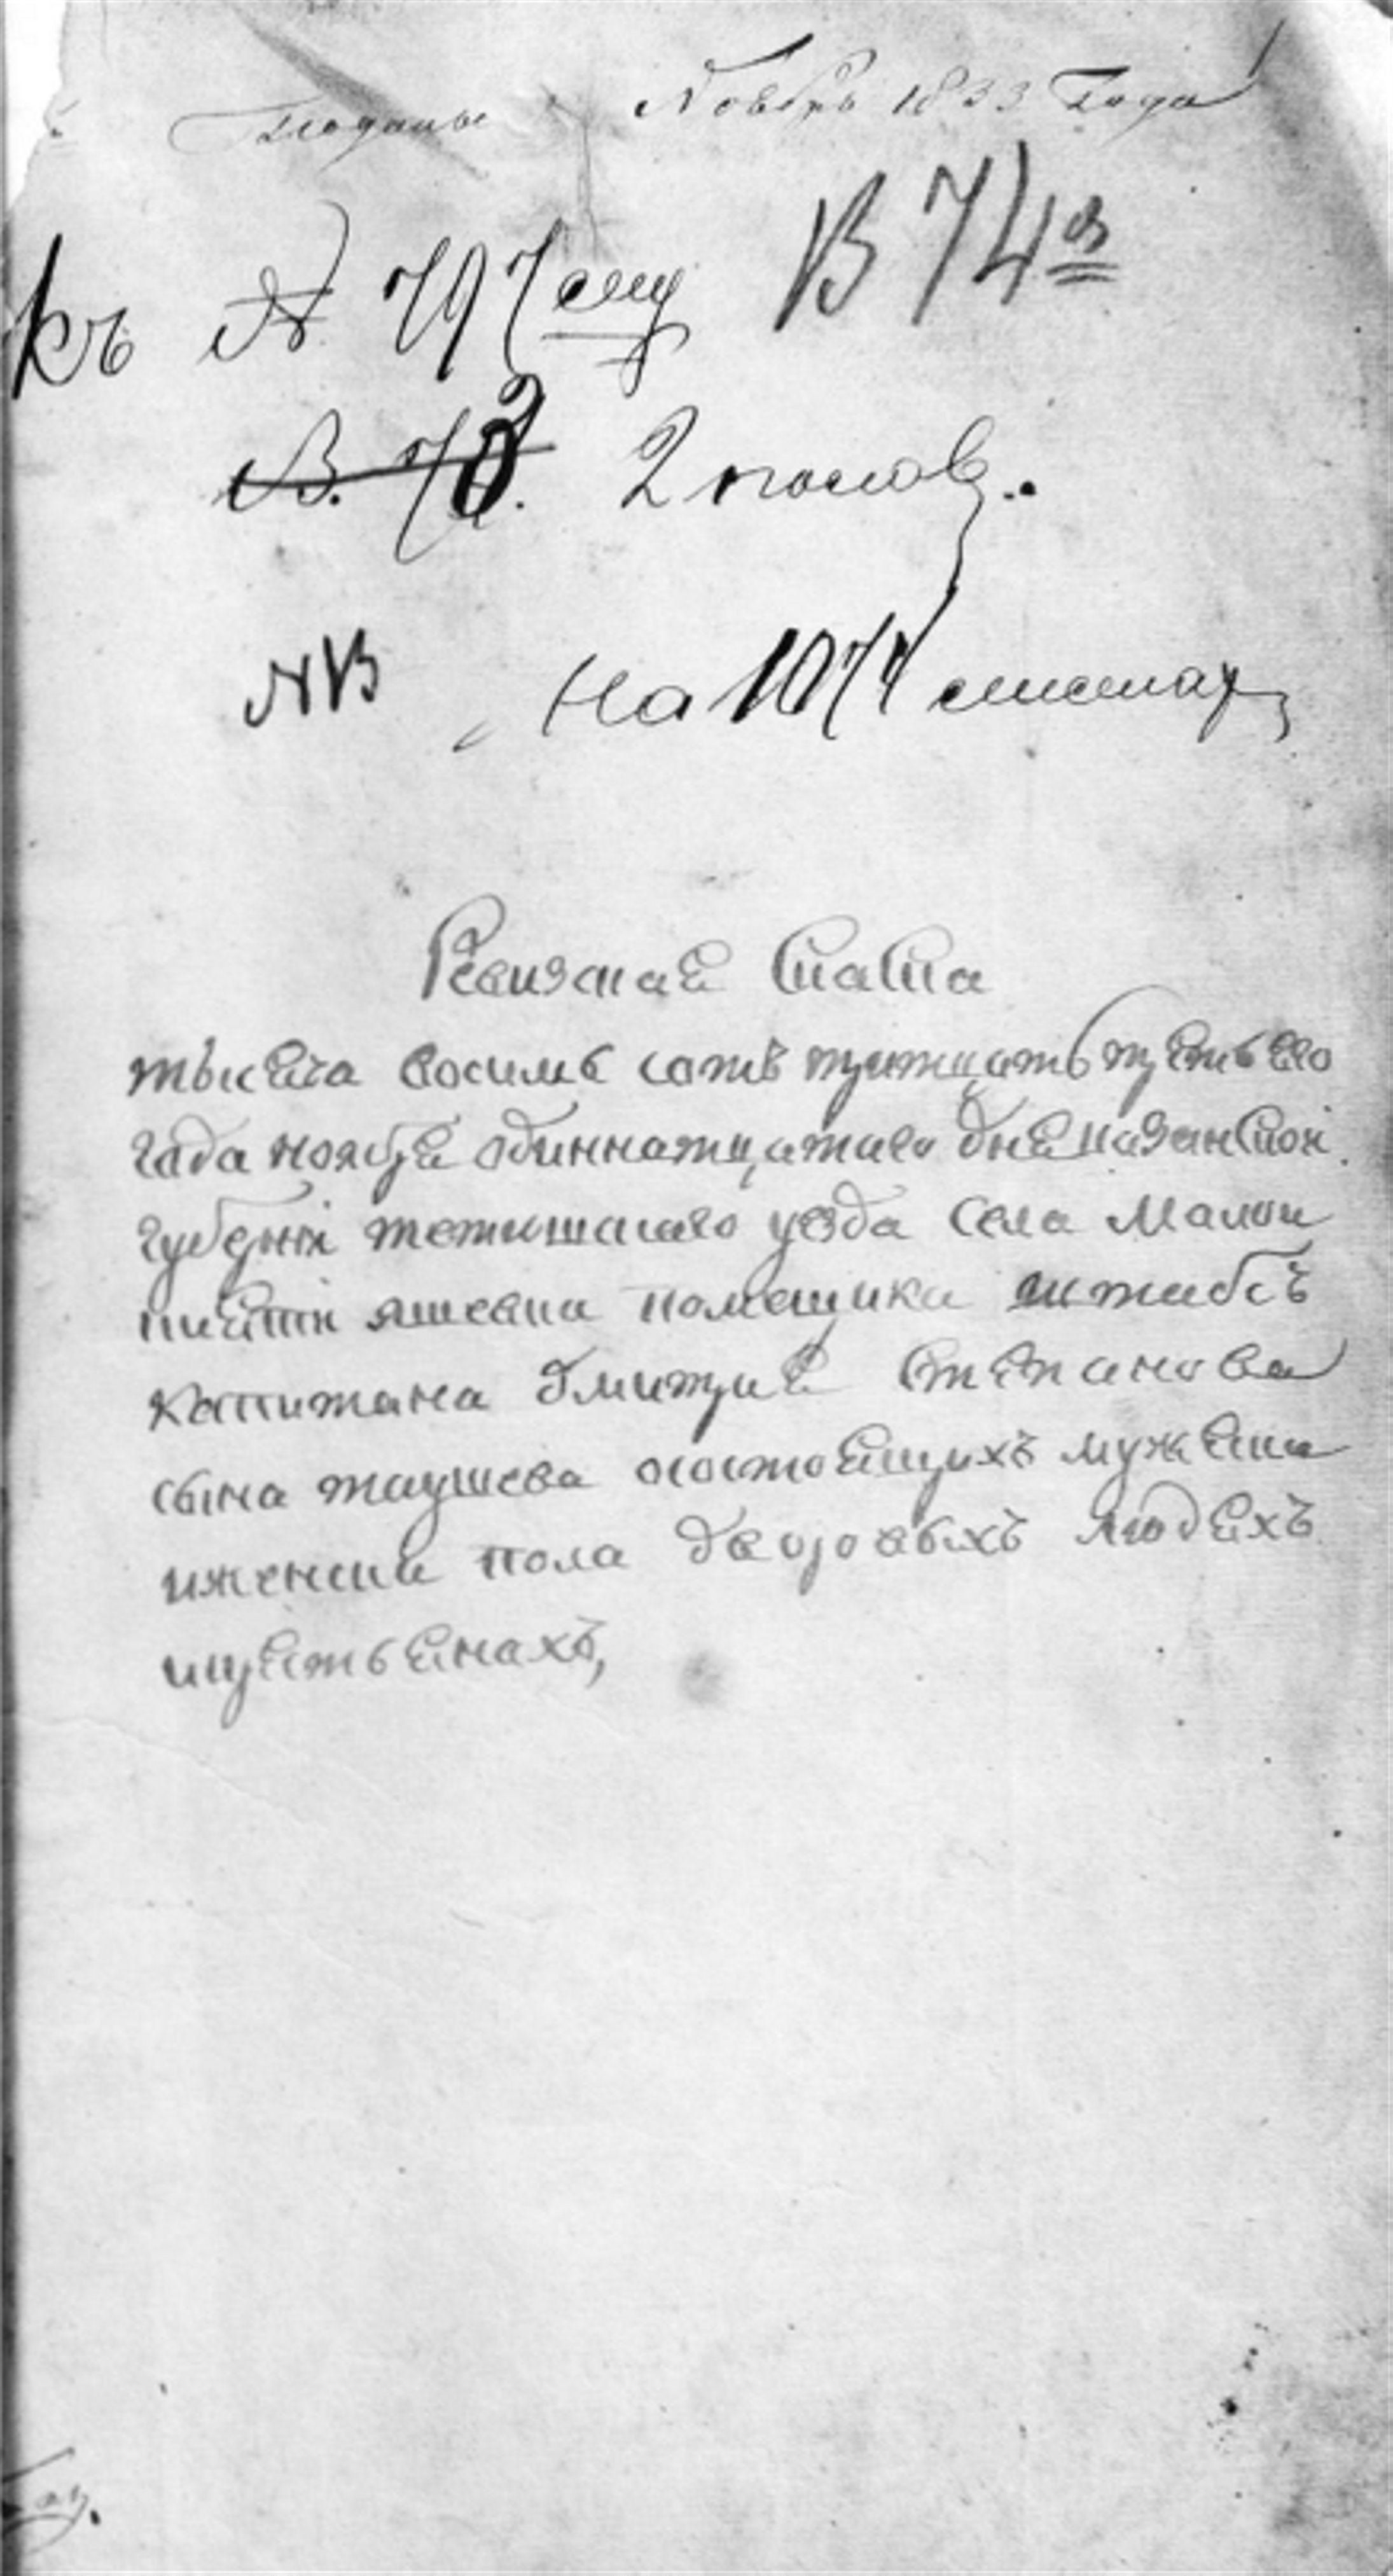 Поданы Ноябрь 1833 Года
Къ № 797ему В 74й
В. 73. 2 полов.
NB На 1077 листах
Ревизская Скаска
тысяча восимь сотъ тритцать третьего
года ноября одиннатцатаго дня казанской
губерніи тетюшскаго уезда села Малои
яшевки помещика штабсъ
капитана дмитрия Степанова
сына таушева осостоящихъ мужеска
иженска пола дворовыхъ людяхъ
икрестьянахъ,